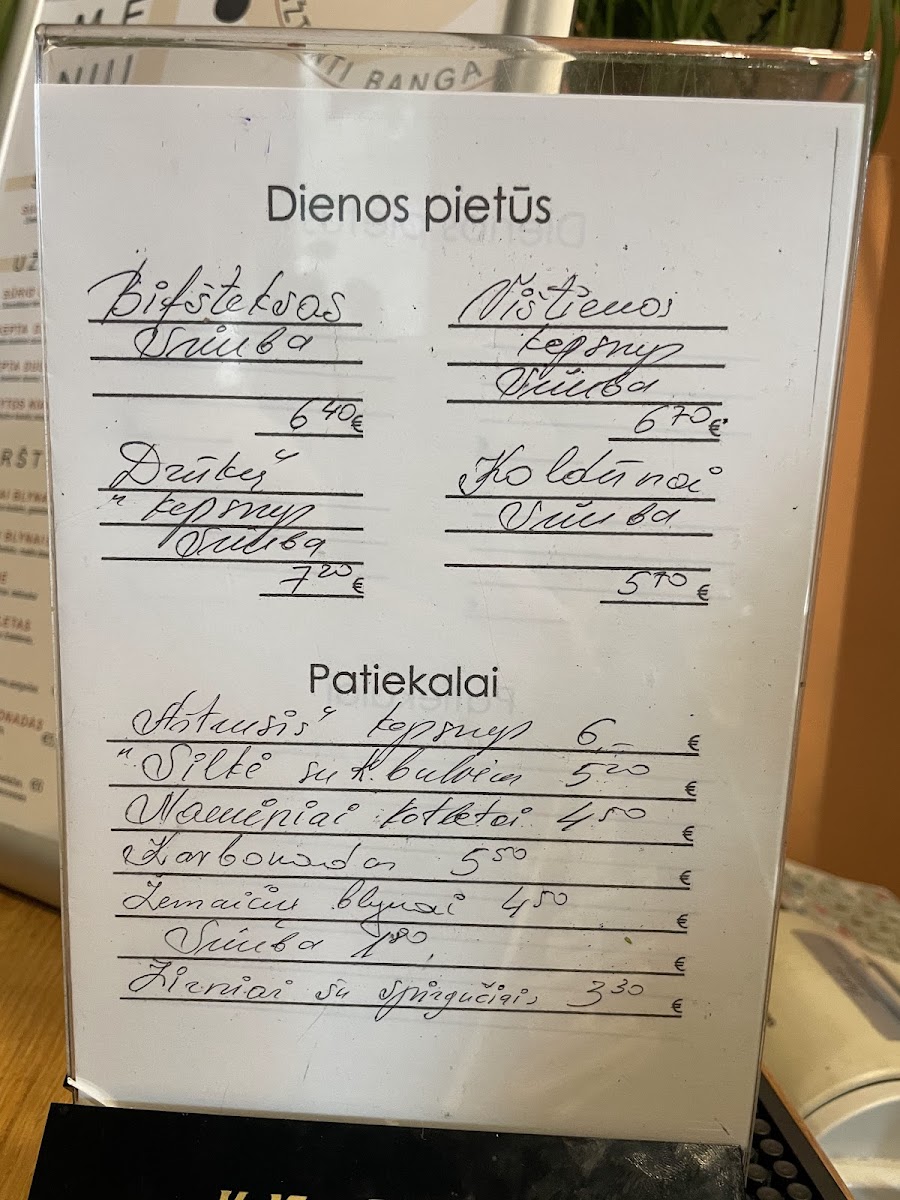 BANGA
Dienos pietūs
Bifšteksas
Sriuba
6 40 €
Vištienos
kepsnys
Sriuba
6 70 €
"Drūkių"
kepsnys
Sriuba
7 20 €
Koldūnai
Sriuba
5 70 €
Patiekalai
kepsnys 6,- €
Silkė su k. bulvėm 5 20 €
Naminiai kotletai 4 50 €
Karbonadas 5 50 €
Žemaičių blynai 4 50 €
Sriuba 1 80 €
Žirniai su spirgučiais 3 30 €